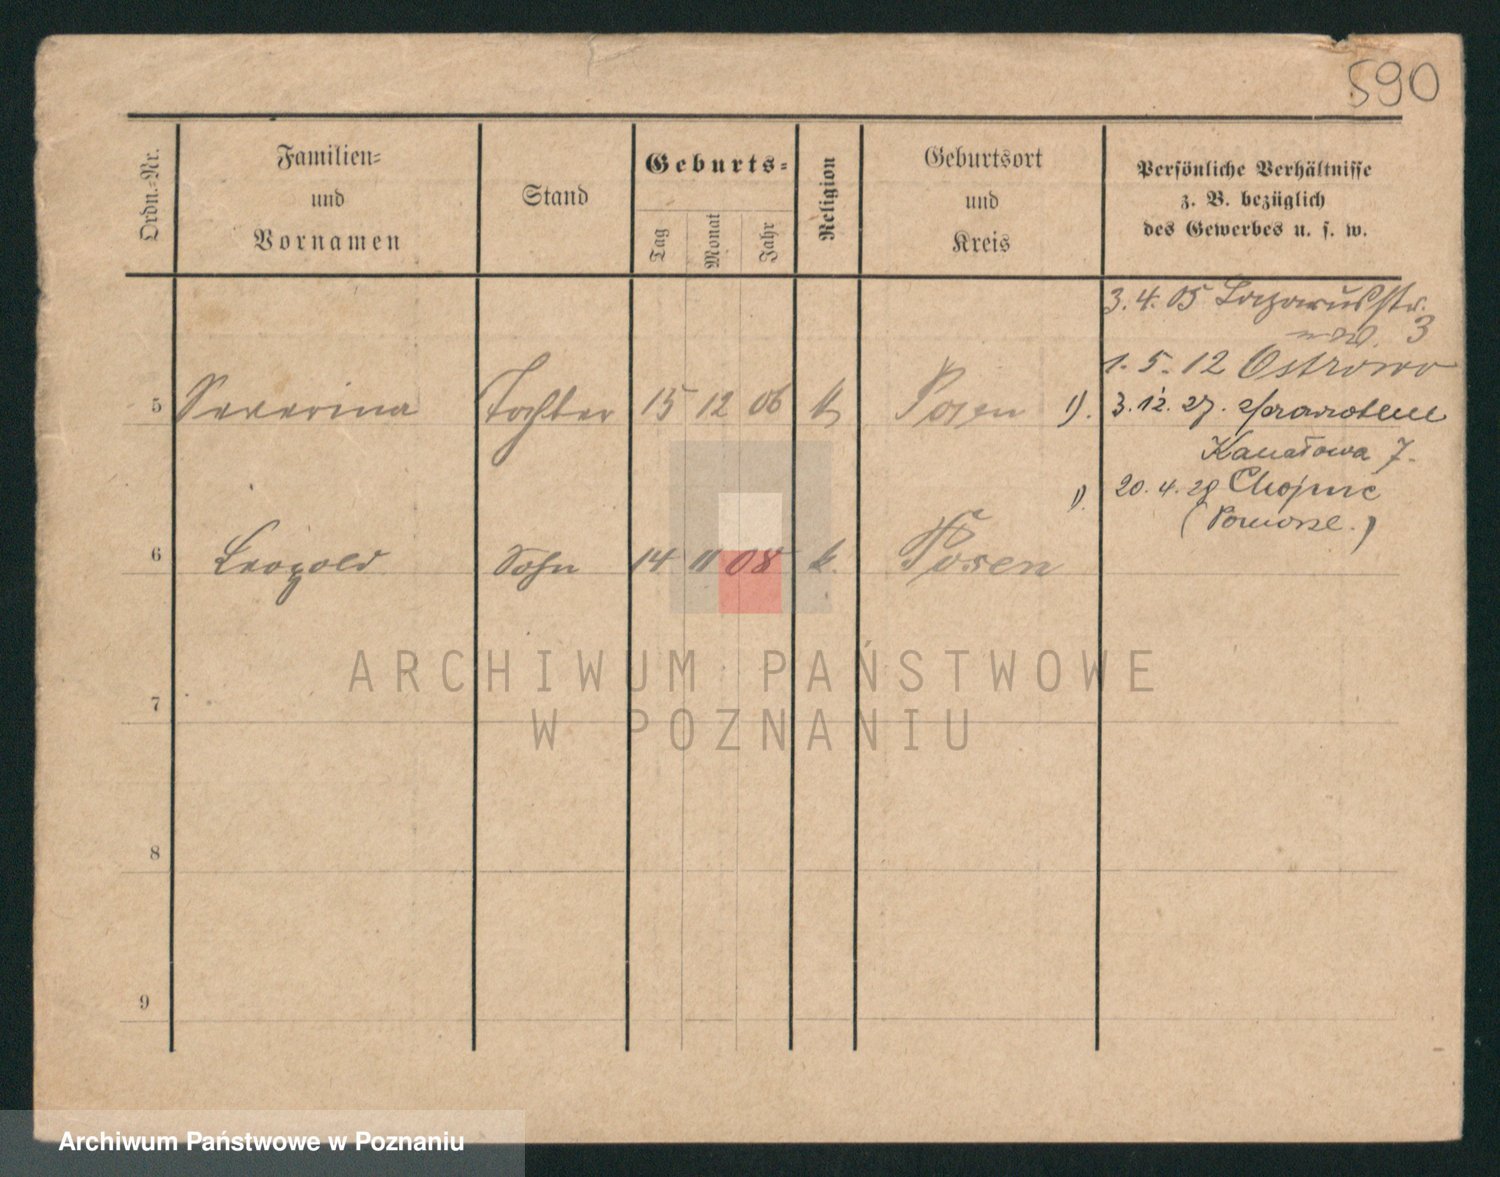 590
Ordn.-Nr.
Familien-
und
Vornamen
Stand
Geburts-
Tag
Monat
Jahr
Religion
Geburtsort
und
Kreis
Persönliche Verhältnisse
z. B. bezüglich
des Gewerbes u. s. w.
3. 4. 05 Lazarusstr.
3
1. 5. 12 Ostrowo
5 Severina Tochter 15 12 06 k Posen 1). 3. 12. 27.
Kanałowa 7.
1). 20. 4. 28 Chojnic
(Pomorze.)
6 Leopold Sohn 14 11 08 k. Posen
ARCHIWUM PAŃSTWOWE
W POZNANIU
7
8
9
Archiwum Państwowe w Poznaniu